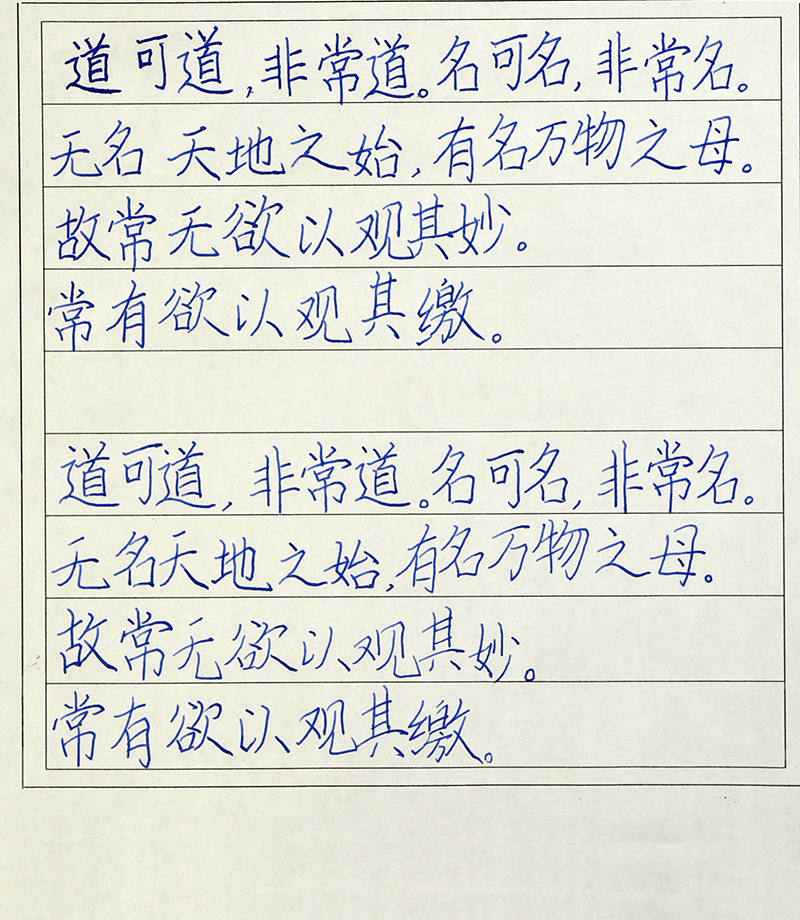 道可道,非常道。名可名,非常名。
无名天地之始,有名万物之母。
故常无欲以观其妙。
常有欲以观其缴。
道可道,非常道。名可名,非常名。
无名天地之始,有名万物之母。
故常无欲以观其妙。
常有欲以观其缴。